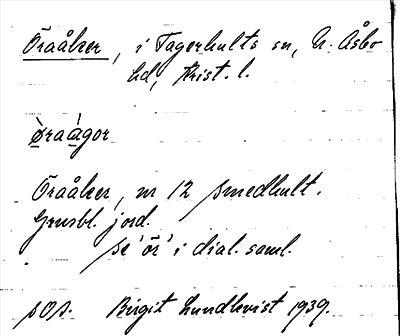 Öraåker, i Fagerhults sn, N. Åsbo
hd, Krist. l.
öraågor
Öraåker, nr 12 Smedhult.
Grusbl. jord.
se 'ör' i dial. saml.
sOs. Birgit Lundkvist 1939.